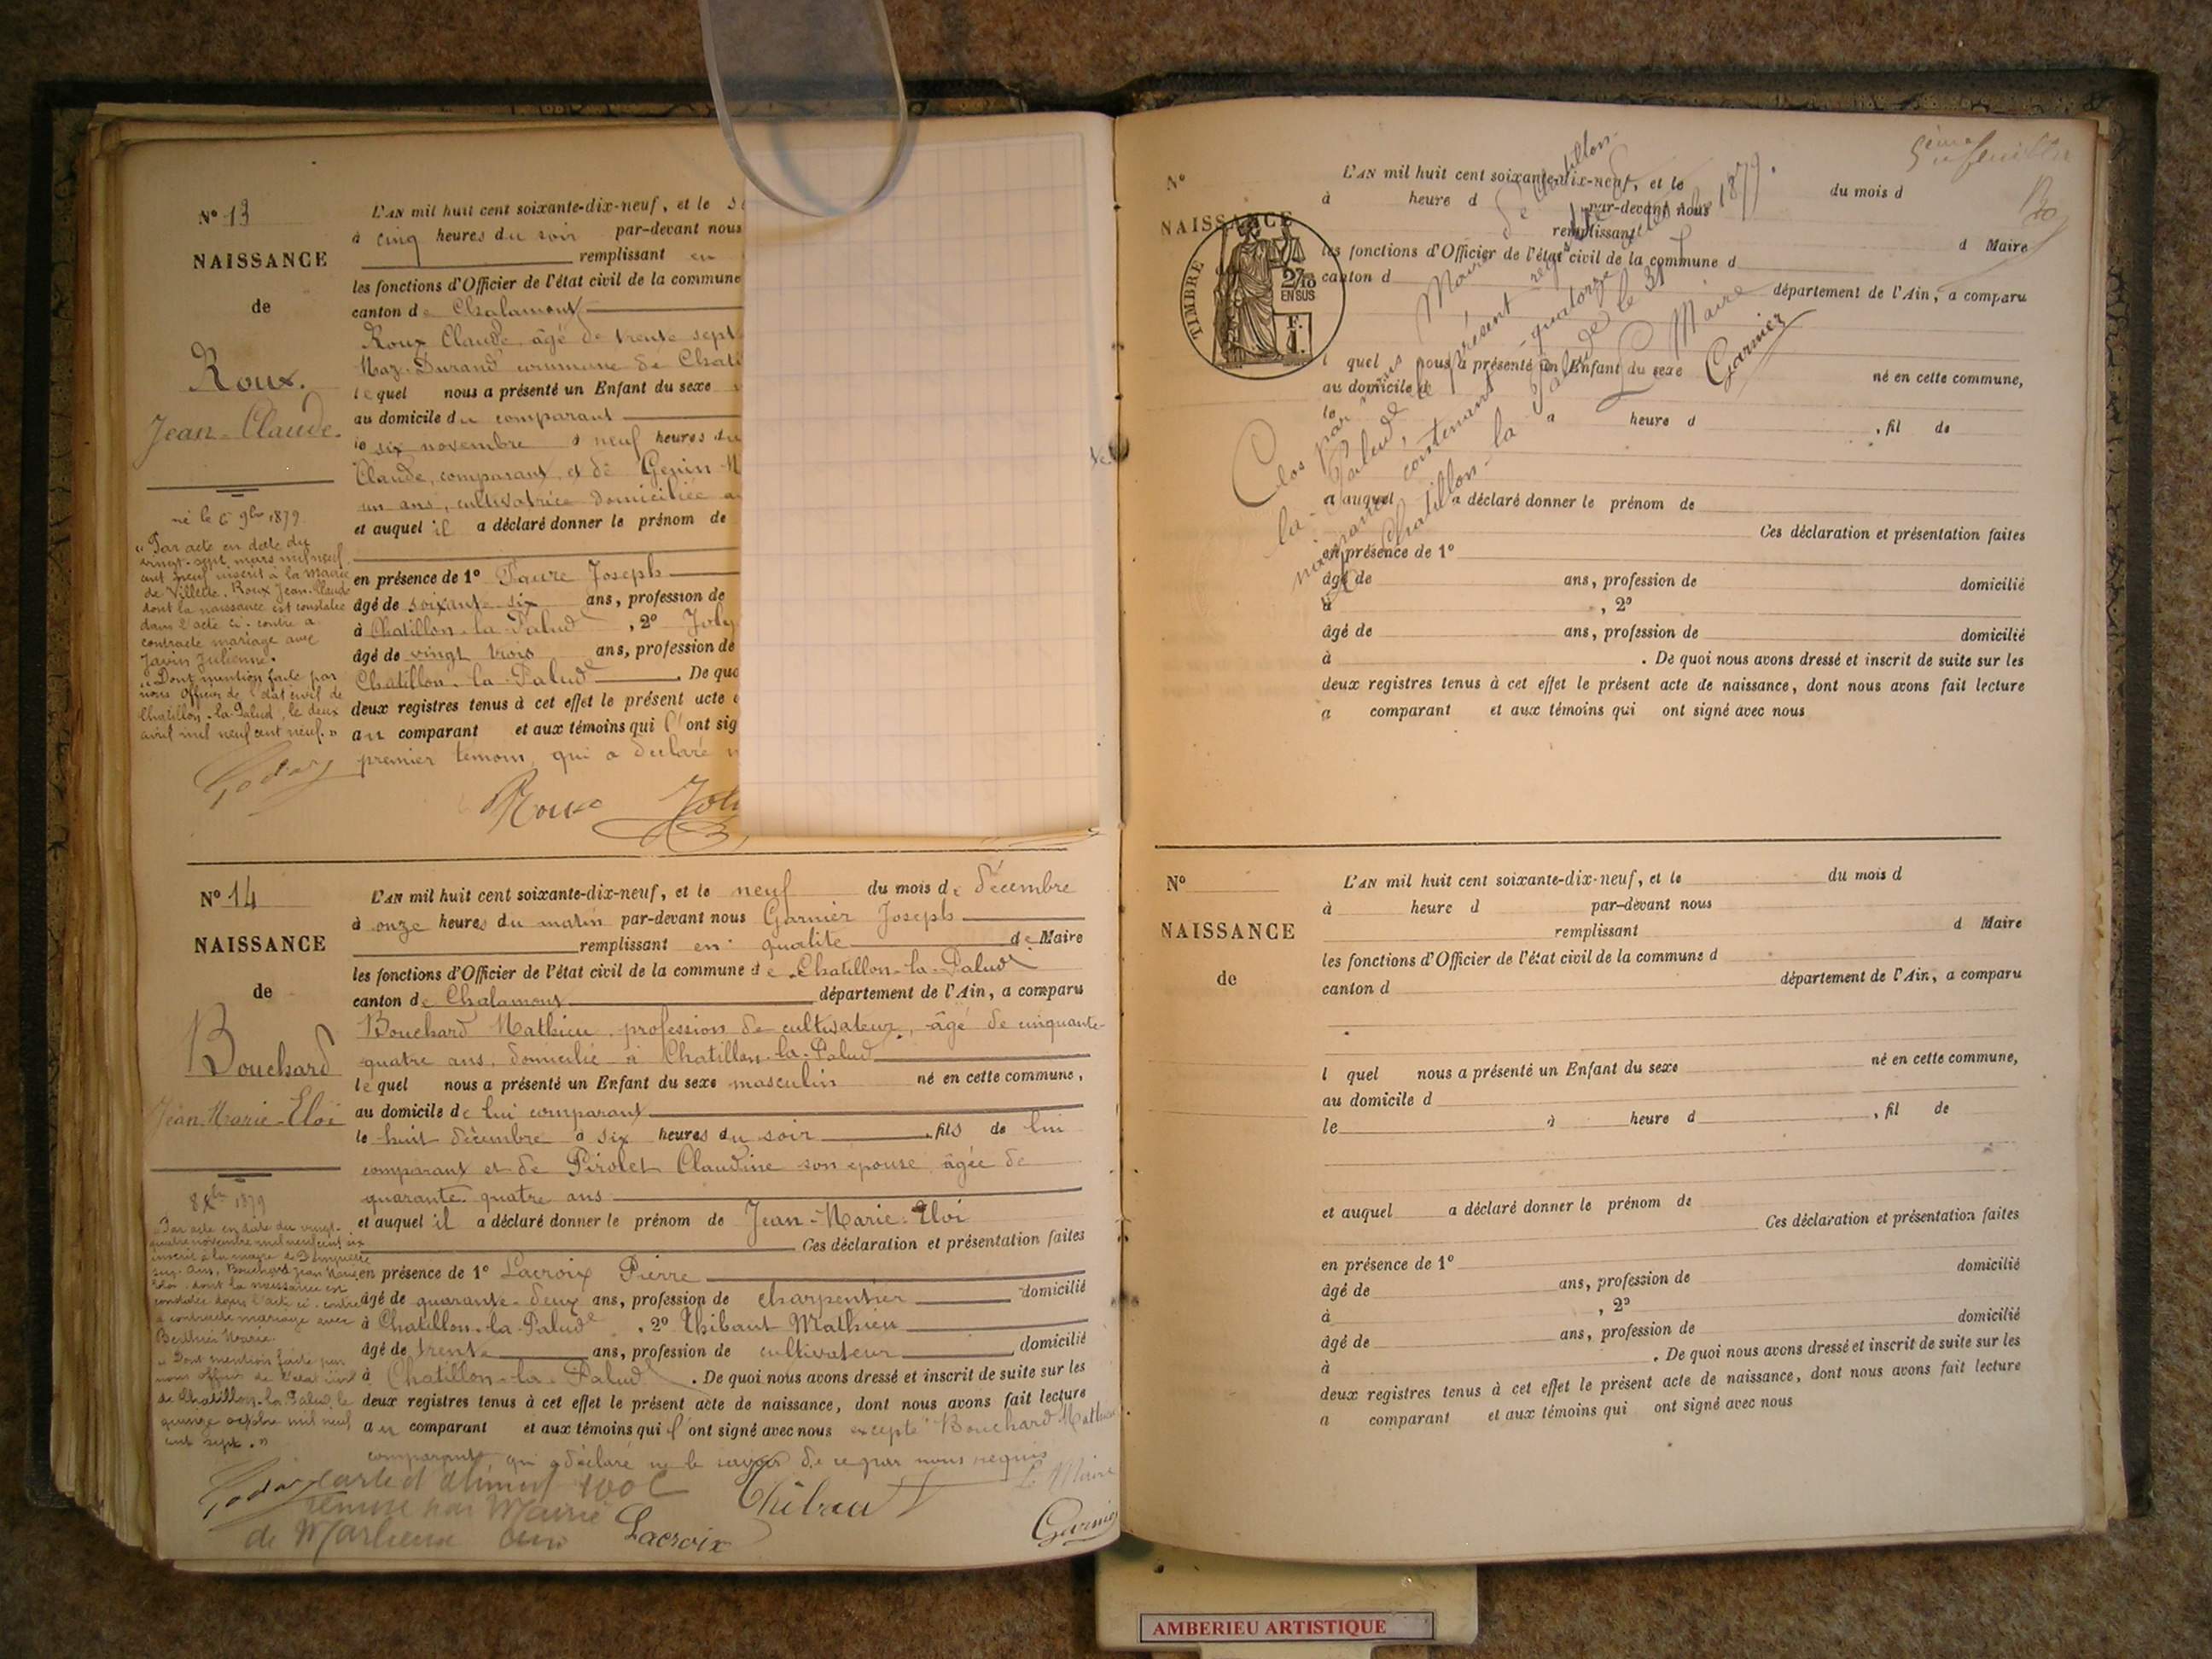 N° 13
NAISSANCE
de
Roux.
Jean-Claude.
né le 6 9bre 1879
"Par acte en date du
vingt-sept mars mil neuf
cent neuf inscrit à la Mairie
de Villette, Roux Jean-Claude
dont la naissance est constatée
dans l'acte ci-contre a
contracté mariage avec
Javin Julienne.
"Dont mention faite par
nous Officier de l'état civil de
Chatillon-la-Palud, le deux
avril mil neuf cent neuf."
L'AN mil huit cent soixante-dix-neuf, et le
à cinq heures du soir par-devant nous
remplissant en
les fonctions d'Officier de l'état civil de la commune
canton de Chalamont
Roux Claude, âgé de trente sept
Maz-Durand commune de Chati
lequel nous a présenté un Enfant du sexe
au domicile du comparant
le six novembre à neuf heures du
Claude, comparant, et de Genin M
un ans, cultivatrice domiciliée a
et auquel il a déclaré donner le prénom de
en présence de 1° Faure Joseph
âgé de soixante-six ans, profession de
à Chatillon-la-Palud, 2° Joly
âgé de vingt trois ans, profession de
Chatillon-la-Palud. De quo
deux registres tenus à cet effet le présent acte
au comparant et aux témoins qui l'ont sig
premier temoin, qui a déclaré
Roux Joly
N° 14
NAISSANCE
de
Bouchard
Jean-Marie-Eloi
8 Xbre 1879
"Par acte en date du vingt-
quatre novembre mil neuf cent six
inscrit à la mairie de Dompierre
sur-Ain, Bouchard Jean Marie
Eloi, dont la naissance est
constatée dans l'acte ci-contre
a contracté mariage avec
Berthier Marie
"Dont mention faite par
nous officier de l'état civil
de Chatillon-la-Palud, le
quinze octobre mil neuf
cent sept."
L'AN mil huit cent soixante-dix-neuf, et le neuf du mois de décembre
à onze heures du matin par-devant nous Garnier Joseph
remplissant en qualité de Maire
les fonctions d'Officier de l'état civil de la commune de Chatillon-la-Palud
canton de Chalamont département de l'Ain, a comparu
Bouchard Mathieu, profession de cultivateur, âgé de cinquante-
quatre ans, domicilié à Chatillon-la-Palud
lequel nous a présenté un Enfant du sexe masculin né en cette commune,
au domicile de lui comparant
le huit décembre à six heures du soir, fils de lui
comparant et de Pirolet Claudine son épouse, âgée de
quarante-quatre ans
et auquel il a déclaré donner le prénom de Jean-Marie-Eloi
Ces déclaration et présentation faites
en présence de 1° Lacroix Pierre
âgé de quarante-deux ans, profession de charpentier domicilié
à Chatillon-la-Palud, 2° Thibaut Mathieu
âgé de trente ans, profession de cultivateur, domicilié
à Chatillon-la-Palud. De quoi nous avons dressé et inscrit de suite sur les
deux registres tenus à cet effet le présent acte de naissance, dont nous avons fait lecture
au comparant et aux témoins qui l'ont signé avec nous excepté Bouchard Mathieu
comparant qui a déclaré ne le savoir de ce par nous requis
carte d'aliment
remise par Mairie
de Marlieux Ain
Lacroix
Thibaut
Le Maire
Garnier
5ème feuillet
N°
NAISSANCE
TIMBRE
2/10
EN SUS
F.
1.
L'AN mil huit cent soixante-dix-neuf, et le du mois d
à heure d par-devant nous
remplissant d Maire
les fonctions d'Officier de l'état civil de la commune d
canton d département de l'Ain, a comparu
l quel nous a présenté un Enfant du sexe né en cette commune,
au domicile d
le à heure d , fil de
et auquel a déclaré donner le prénom de
Ces déclaration et présentation faites
en présence de 1°
âgé de ans, profession de domicilié
à , 2°
âgé de ans, profession de domicilié
à . De quoi nous avons dressé et inscrit de suite sur les
deux registres tenus à cet effet le présent acte de naissance, dont nous avons fait lecture
a comparant et aux témoins qui ont signé avec nous
Clos par nous Maire de Chatillon
la-Palud, le présent registre des
naissances contenant quatorze
Chatillon-la-Palud le 31 1879.
Le Maire
Garnier
N°
NAISSANCE
de
L'AN mil huit cent soixante-dix-neuf, et le du mois d
à heure d par-devant nous
remplissant d Maire
les fonctions d'Officier de l'état civil de la commune d
canton d département de l'Ain, a comparu
l quel nous a présenté un Enfant du sexe né en cette commune,
au domicile d
le à heure d , fil de
et auquel a déclaré donner le prénom de
Ces déclaration et présentation faites
en présence de 1° domicilié
âgé de ans, profession de
à , 2° domicilié
âgé de ans, profession de
à . De quoi nous avons dressé et inscrit de suite sur les
deux registres tenus à cet effet le présent acte de naissance, dont nous avons fait lecture
a comparant et aux témoins qui ont signé avec nous
AMBERIEU ARTISTIQUE